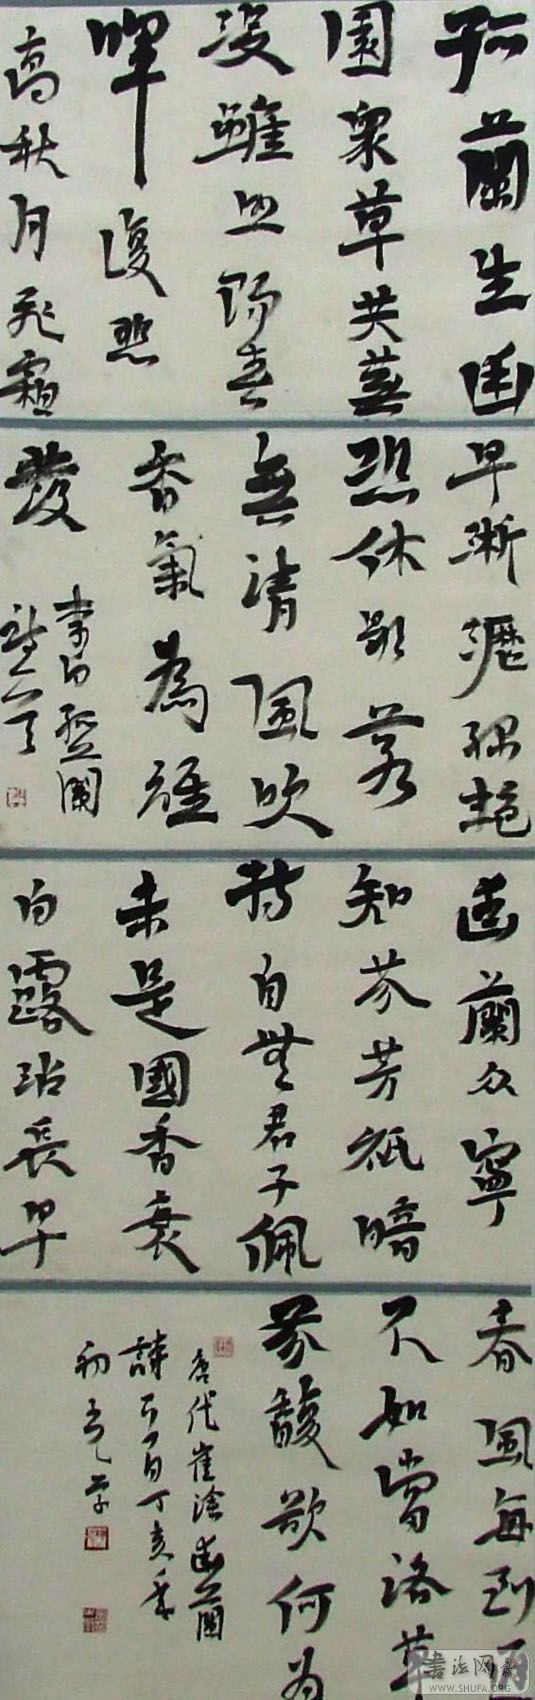 孤蘭生幽
園衆草共蕪
没雖照陽春
暉復悲
高秋月飛霜
早淅瀝緑艷
恐休歇若
無清風吹
香氣為誰
發
李白孤蘭
幽蘭众寧
知芬芳祇暗
持自無君子佩
未是國香衰
白露沾長早
春風每到
不如當路草
芬馥欲何為
唐代崔塗幽蘭
詩一首丁亥年
初
書法网
WWW.SHUFA.ORG